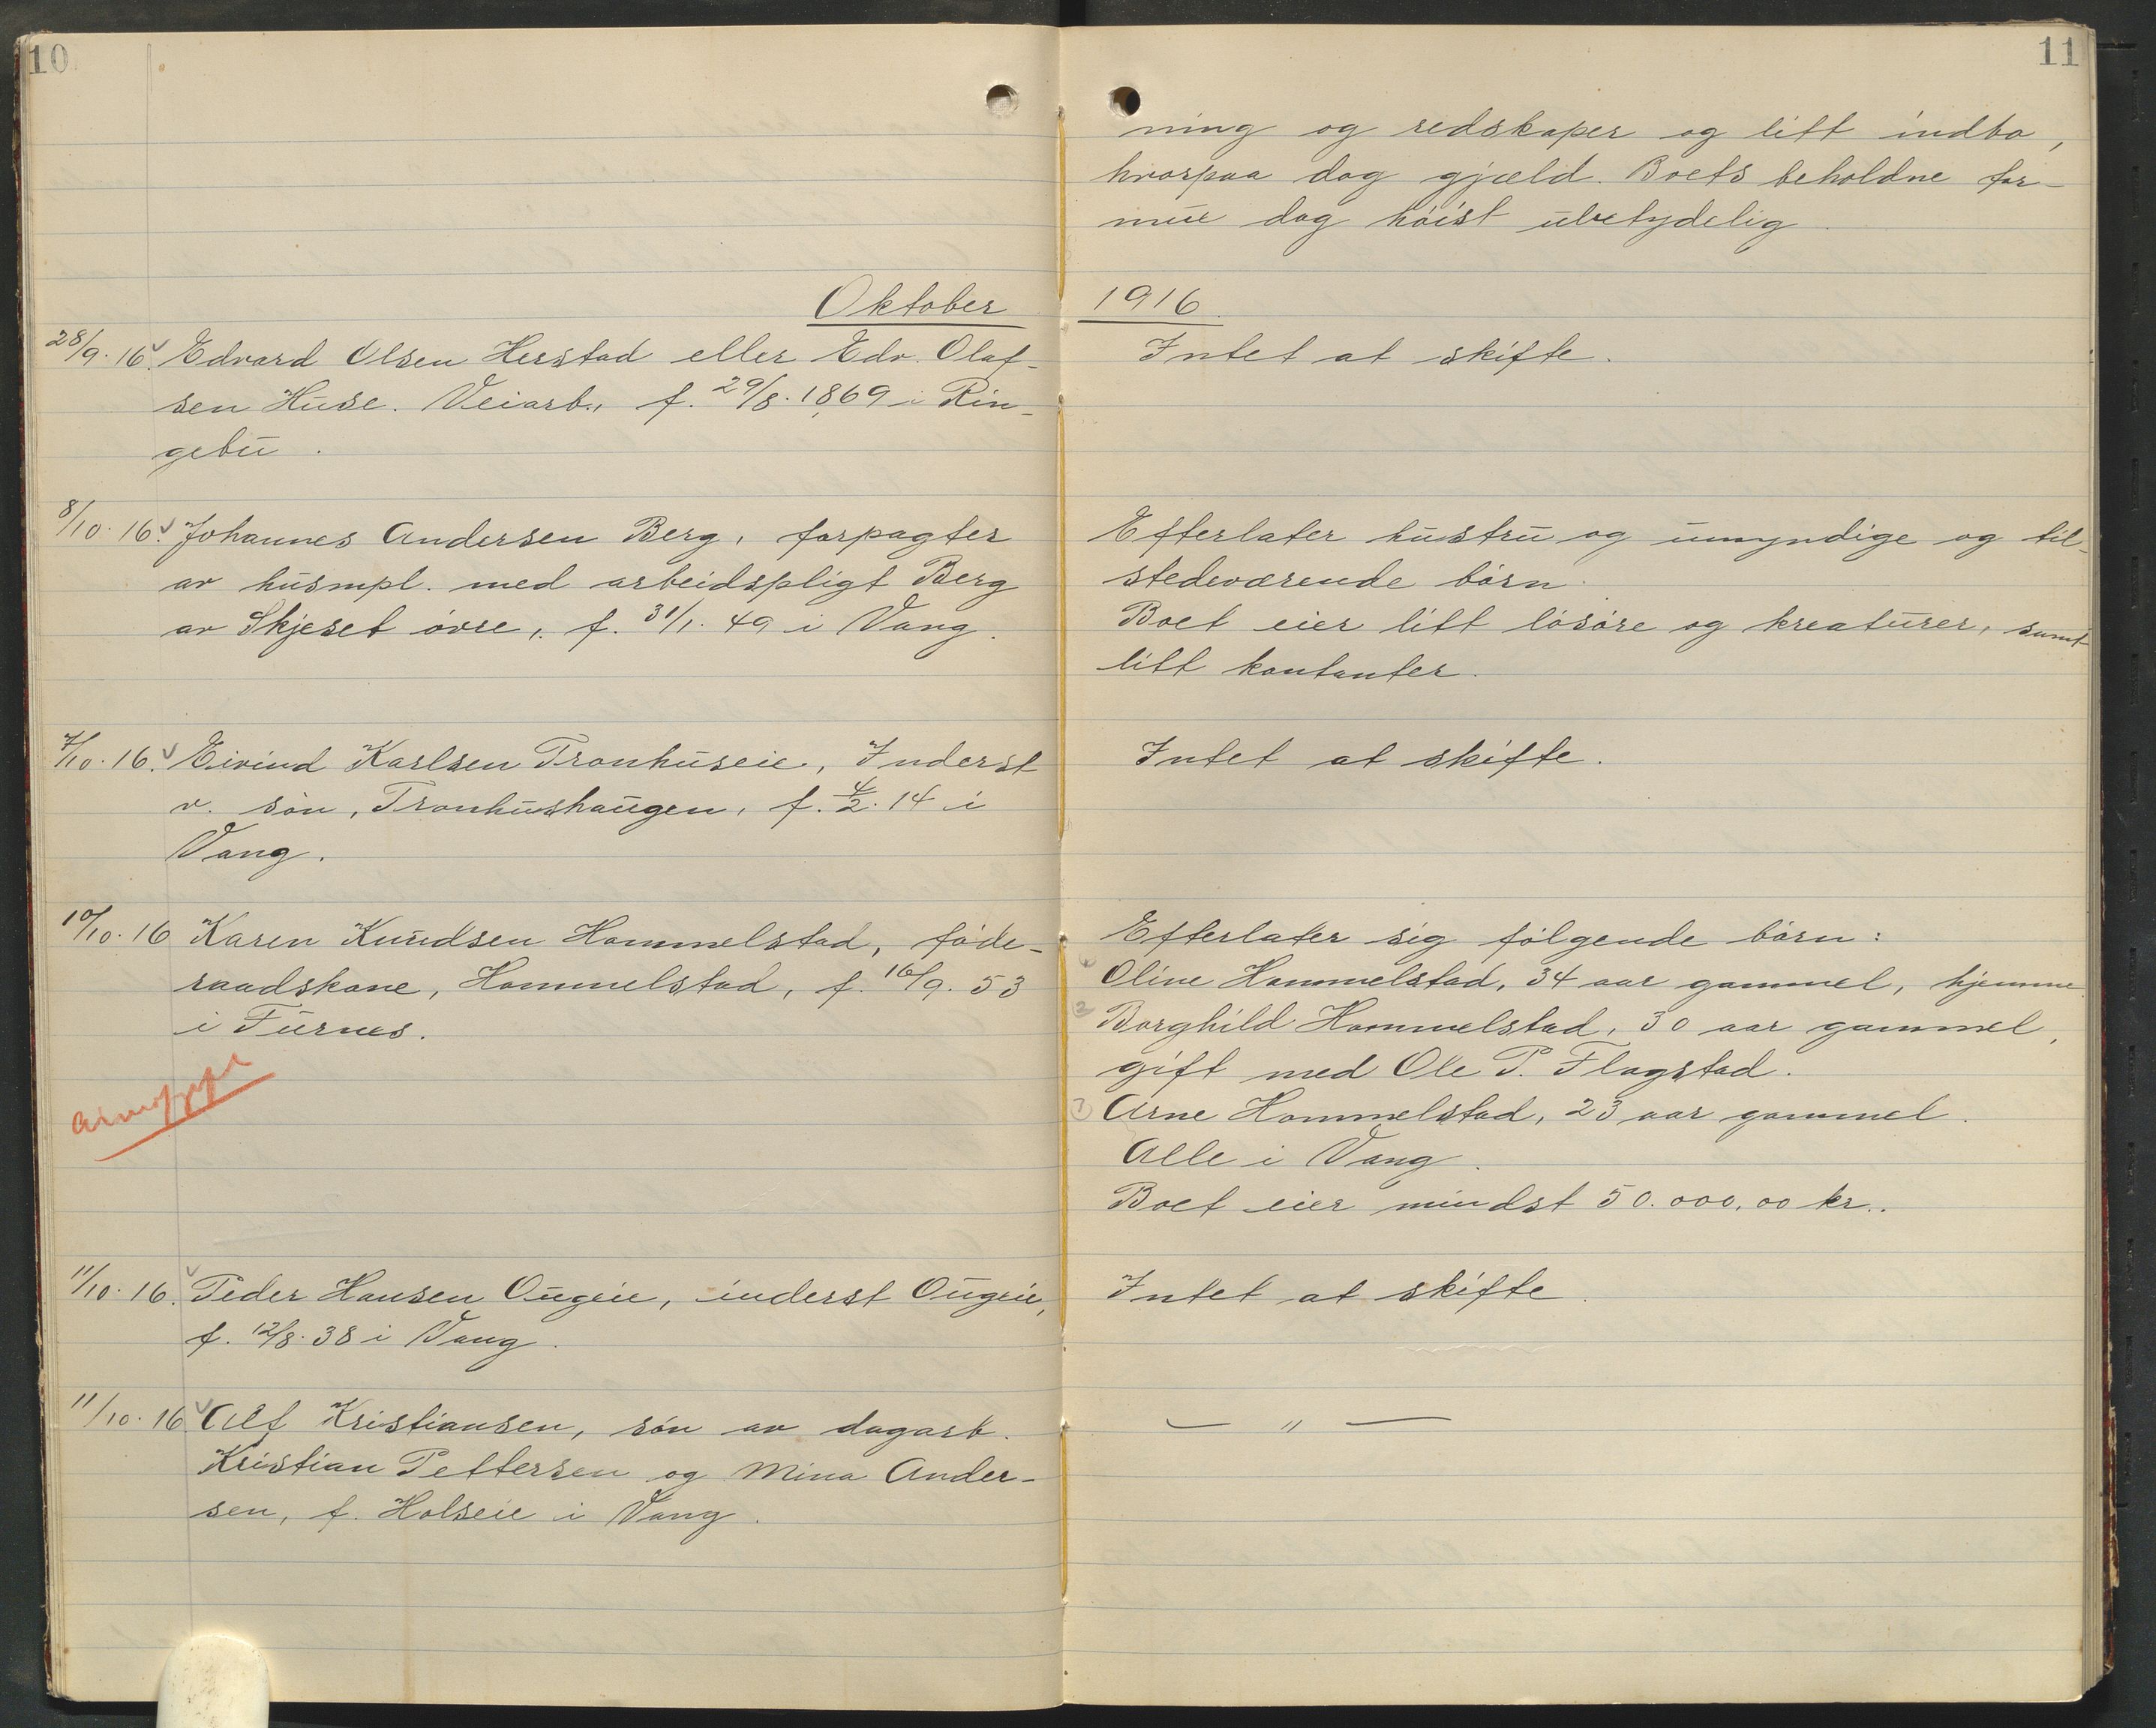 10
Oktober
28/9. 16. Edvard Olsen Herstad eller Edv. Olaf-
sen Huse. Veiarb., f. 29/8. 1869 i Rin-
gebu.
8/10. 16. Johannes Andersen Berg, forpagter
av husmpl. med arbeidspligt Berg
av Skjeset övre, f. 31/1. 49 i Vang.
7/10. 16. Eivind Karlsen Tronhuseie, Inderst
v. sön, Tronhushaugen, f. 4/2. 14 i
Vang.
10/10. 16 Karen Knudsen Hommelstad, föde-
raadskone, Hommelstad, f. 16/9. 53
i Furnes.
11/10. 16. Peder Hansen Ougeie, inderst Ougeie,
f. 12/8. 38 i Vang.
11/10. 16 Alf Kristiansen, sön av dagarb.
Kristian Pettersen og Mina Ander-
sen, f. Holseie i Vang.
11
ning og redskaper og litt indbo,
hvorpaa dog gjæld. Boets beholdne for-
mue dog höist ubetydelig.
1916.
Intet at skifte.
Efterlater hustru og umyndige og til-
stedeværende börn.
Boet eier litt lösöre og kreaturer, samt
litt kontanter.
Intet at skifte.
Efterlater sig fölgende börn:
Oline Hommelstad, 34 aar gammel, hjemme.
2 Borghild Hommelstad, 30 aar gammel,
gift med Ole P. Flagstad.
Arne Hommelstad, 23 aar gammel.
Alle i Vang.
Boet eier mindst 50.000,00 kr..
Intet at skifte.
— " —